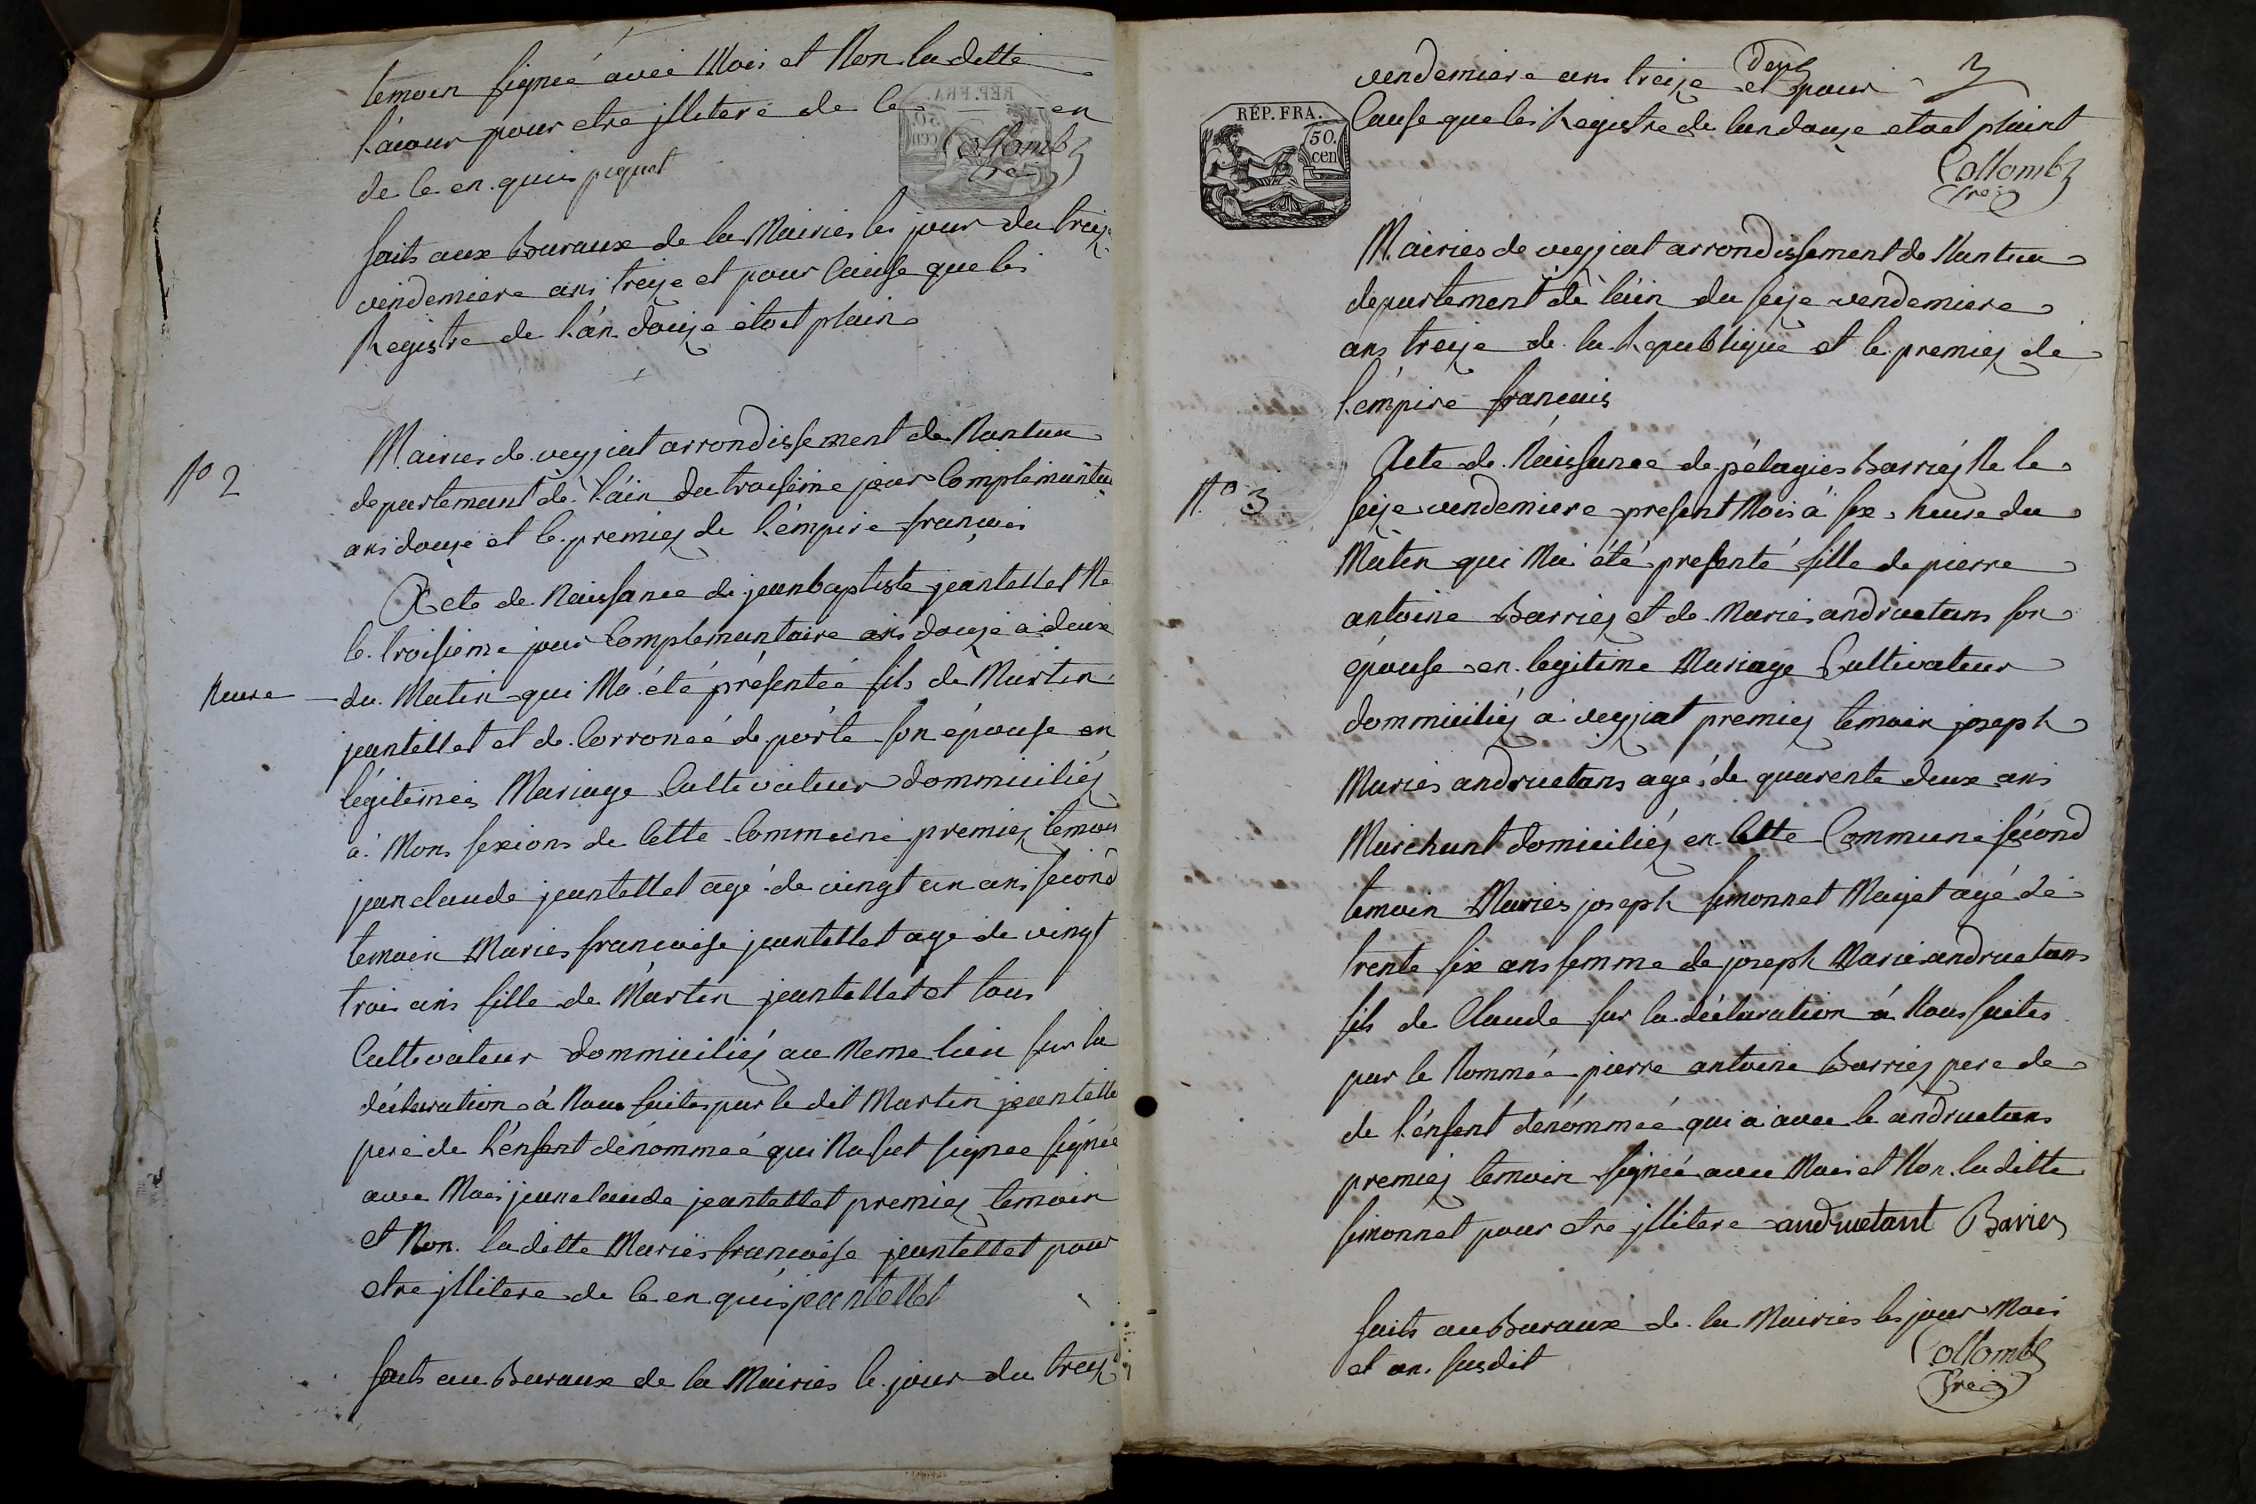 temoin signeé avec Mois et Non la ditte
lacour pour etre jllitere de ce en
de ce en quis piquet
Collomb
REP. FRA.
50.
cen
faits aux Buraux de la Mairies les jour du treize
vendemiere ans treize et pour Cause que les
Registre de l'an douze etoet plain
No 2
Mairies de veyziat arrondissement de Nantua
departement de l'ain du troisieme jour Complementaire
ans douze et le premiez de l'émpire français
Acte de Naissance de jeanbaptiste jeantellet Ne
le troisieme jour Complementaire ans douze a deux
heure du Matin qui Ma été présenteé fils de Martin
jeantellet et de Corroneé deporte son épouse en
légitimes Mariage Cultivateur dommiciliéz
a Mons sexions de Cette Commune premiez temoin
jean claude jeantellet agé de vingt un ans second
temoin Maries francoise jeantellet age de vingt
trois ans fille de Martin jeantellet et tous
Cultivateur dommiciliéz au Meme lieu sur la
déclaration à Nous faites par le dit Martin jeantelle
pere de l'énfent dénommeé qui signee
avec Mois jean claude jeantellet premiez temoin
et Non la ditte Maries francoise jeantellet pour
etre jllitere de ce en quis jeantellet
faits au Buraux de la Mairies le jour du treize
vendemiere ans treize deux et pour
Cause que les Registre de lan douze etoet plaint
Collomb
REP. FRA.
50.
cen
Mairies de veyziat arrondissement de Nantua
departement de l'ain du seize vendemiere
ans treize de la Republique et le premiez de
l'émpire francais
No 3
Acte de Naissance de pélagies Barriéz Ne le
seize vendemiere present Mois à six heure du
Matin qui Ma été presenté fille de pierre
antoine Barriez et de Maries andruetans son
épouse en legitime Mariage Cultivateur
dommiciliéz a veyziat premiez temoin joseph
Maries andruetans agé de quarente deux ans
Marchant domiciliéz en Cette Commune sécond
temoin Maries joseph simonnet Mayet agé de
trente six ans femme de joseph Maries andruetans
fils de Claude sur la déclaration à Nous faites
par le Nommeé pierre antoine Barriez pere de
de l'énfent dénommeé qui a avec le andruetans
premiez temoin signeé avec Mois et Non la ditte
simonnet pour etre jllitere andruetant Barier
faits au Buraux de la Mairies les jour Mois
et an susdit
Collomb